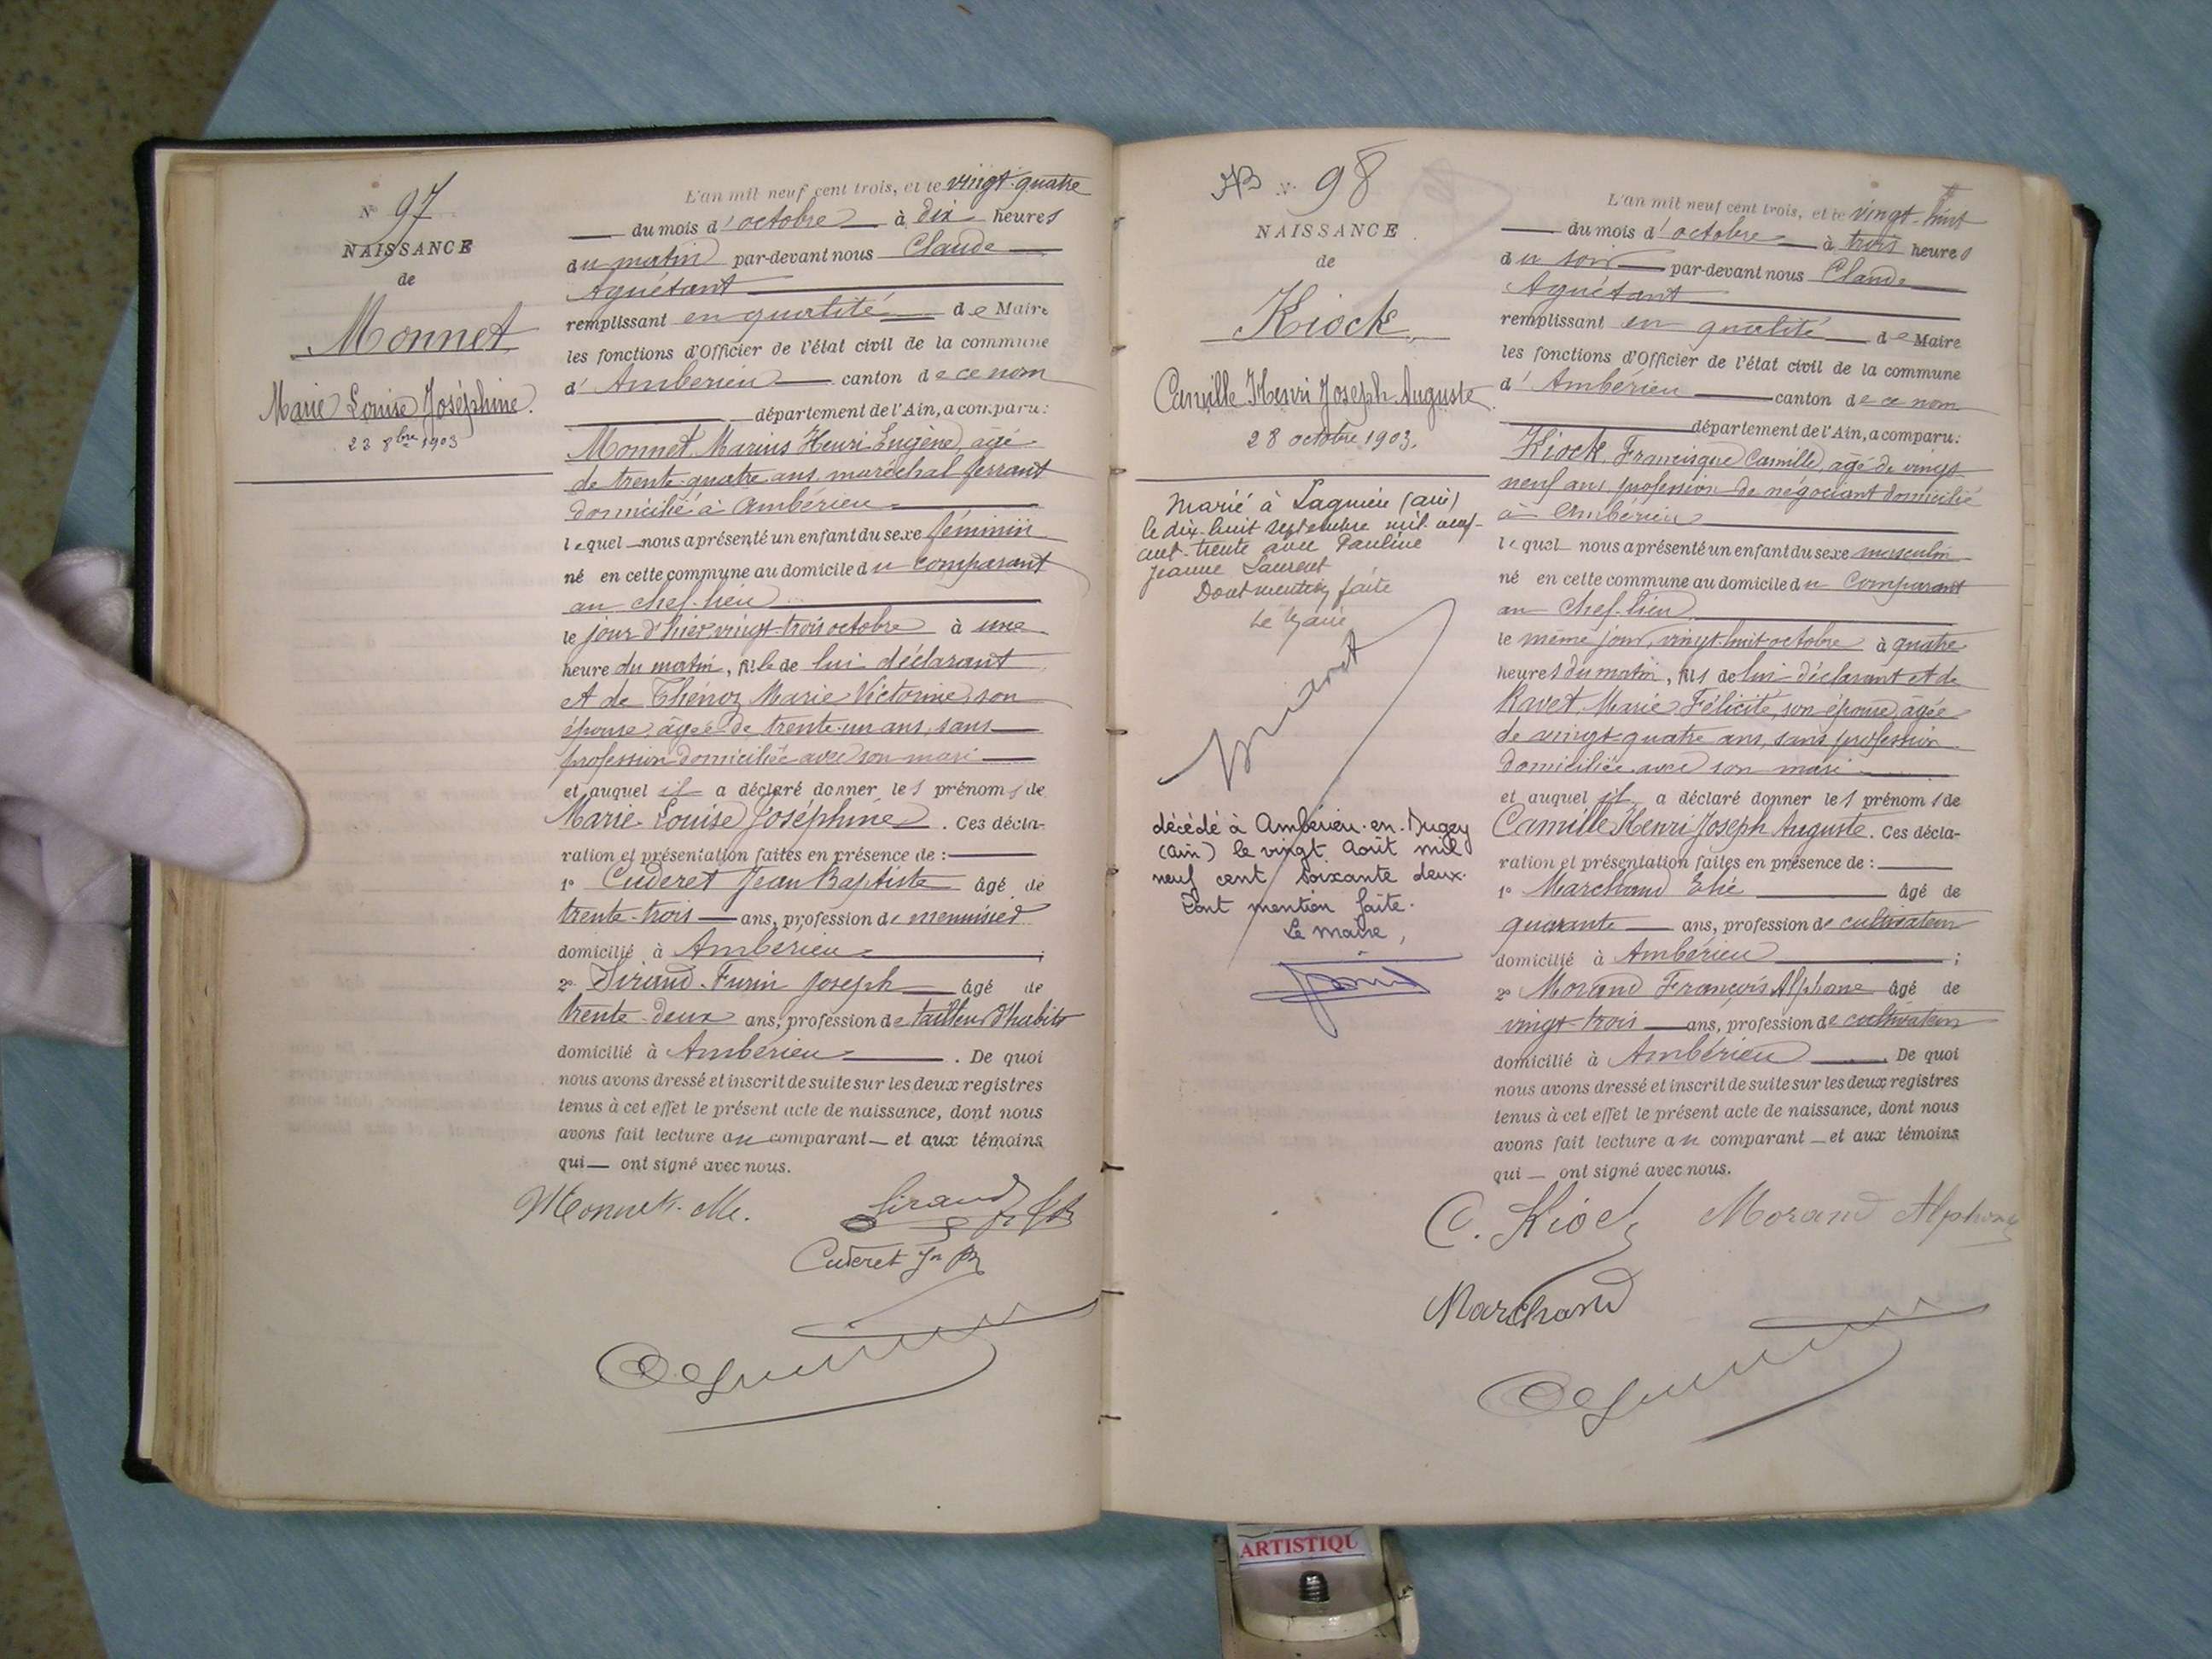 N° 97
NAISSANCE
de
Monnet
Marie Louise Joséphine.
23 8bre 1903
L'an mil neuf cent trois, et le vingt-quatre
du mois d'octobre à dix heures
du matin par-devant nous Claude
Aguétant
remplissant en qualité de Maire
les fonctions d'Officier de l'état civil de la commune
d'Ambérieu canton de ce nom
département de l'Ain, a comparu:
Monnet Marius Henri Eugène, âgé
de trente-quatre ans, maréchal ferrant
domicilié à Ambérieu
lequel nous a présenté un enfant du sexe féminin
né en cette commune au domicile du comparant
au chef-lieu
le jour d'hier vingt-trois octobre à une
heure du matin, fille de lui déclarant
et de Thénoz Marie Victorine, son
épouse, âgée de trente-un ans, sans
profession domiciliée avec son mari
et auquel il a déclaré donner les prénoms de
Marie Louise Joséphine. Ces décla-
ration et présentation faites en présence de :
1° Cuderet Jean Baptiste âgé de
trente-trois ans, profession de menuisier
domicilié à Ambérieu ;
2° Siraud Joseph âgé de
trente-deux ans, profession de tailleur d'habits
domicilié à Ambérieu . De quoi
nous avons dressé et inscrit de suite sur les deux registres
tenus à cet effet le présent acte de naissance, dont nous
avons fait lecture au comparant et aux témoins
qui ont signé avec nous.
Monnet. M.
Siraud
Cuderet Jn Bte
N° 98
NAISSANCE
de
Kiock
Camille Henri Joseph Auguste.
28 octobre 1903.
Marié à Lagnieu (ain)
le dix-huit septembre mil neuf-
cent-trente avec Pauline
Jeanne Laurent
Dont mention faite
Le Maire
décédé à Ambérieu-en-Bugey
(Ain) le vingt Août mil
neuf cent soixante deux.
Dont mention faite.
Le Maire,
L'an mil neuf cent trois, et le vingt-huit
du mois d'octobre à trois heures
du soir par-devant nous Claude
Aguétant
remplissant en qualité de Maire
les fonctions d'Officier de l'état civil de la commune
d'Ambérieu canton de ce nom
département de l'Ain, a comparu:
Kiock, Francisque Camille, âgé de vingt
neuf ans, profession de négociant domicilié
à Ambérieu
lequel nous a présenté un enfant du sexe masculin
né en cette commune au domicile du comparant
au chef-lieu
le même jour, vingt-huit octobre à quatre
heures du matin, fils de lui déclarant et de
Ravet Marie Félicité, son épouse, âgée
de vingt-quatre ans, sans profession
domiciliée avec son mari
et auquel il a déclaré donner les prénoms de
Camille Henri Joseph Auguste. Ces décla-
ration et présentation faites en présence de :
1° Marchand Elie âgé de
quarante ans, profession de cultivateur
domicilié à Ambérieu ;
2° Morand François Alphonse âgé de
vingt-trois ans, profession de cultivateur
domicilié à Ambérieu . De quoi
nous avons dressé et inscrit de suite sur les deux registres
tenus à cet effet le présent acte de naissance, dont nous
avons fait lecture au comparant et aux témoins
qui ont signé avec nous.
C. Kiock Morand Alphonse
Marchand
ARTISTIQU